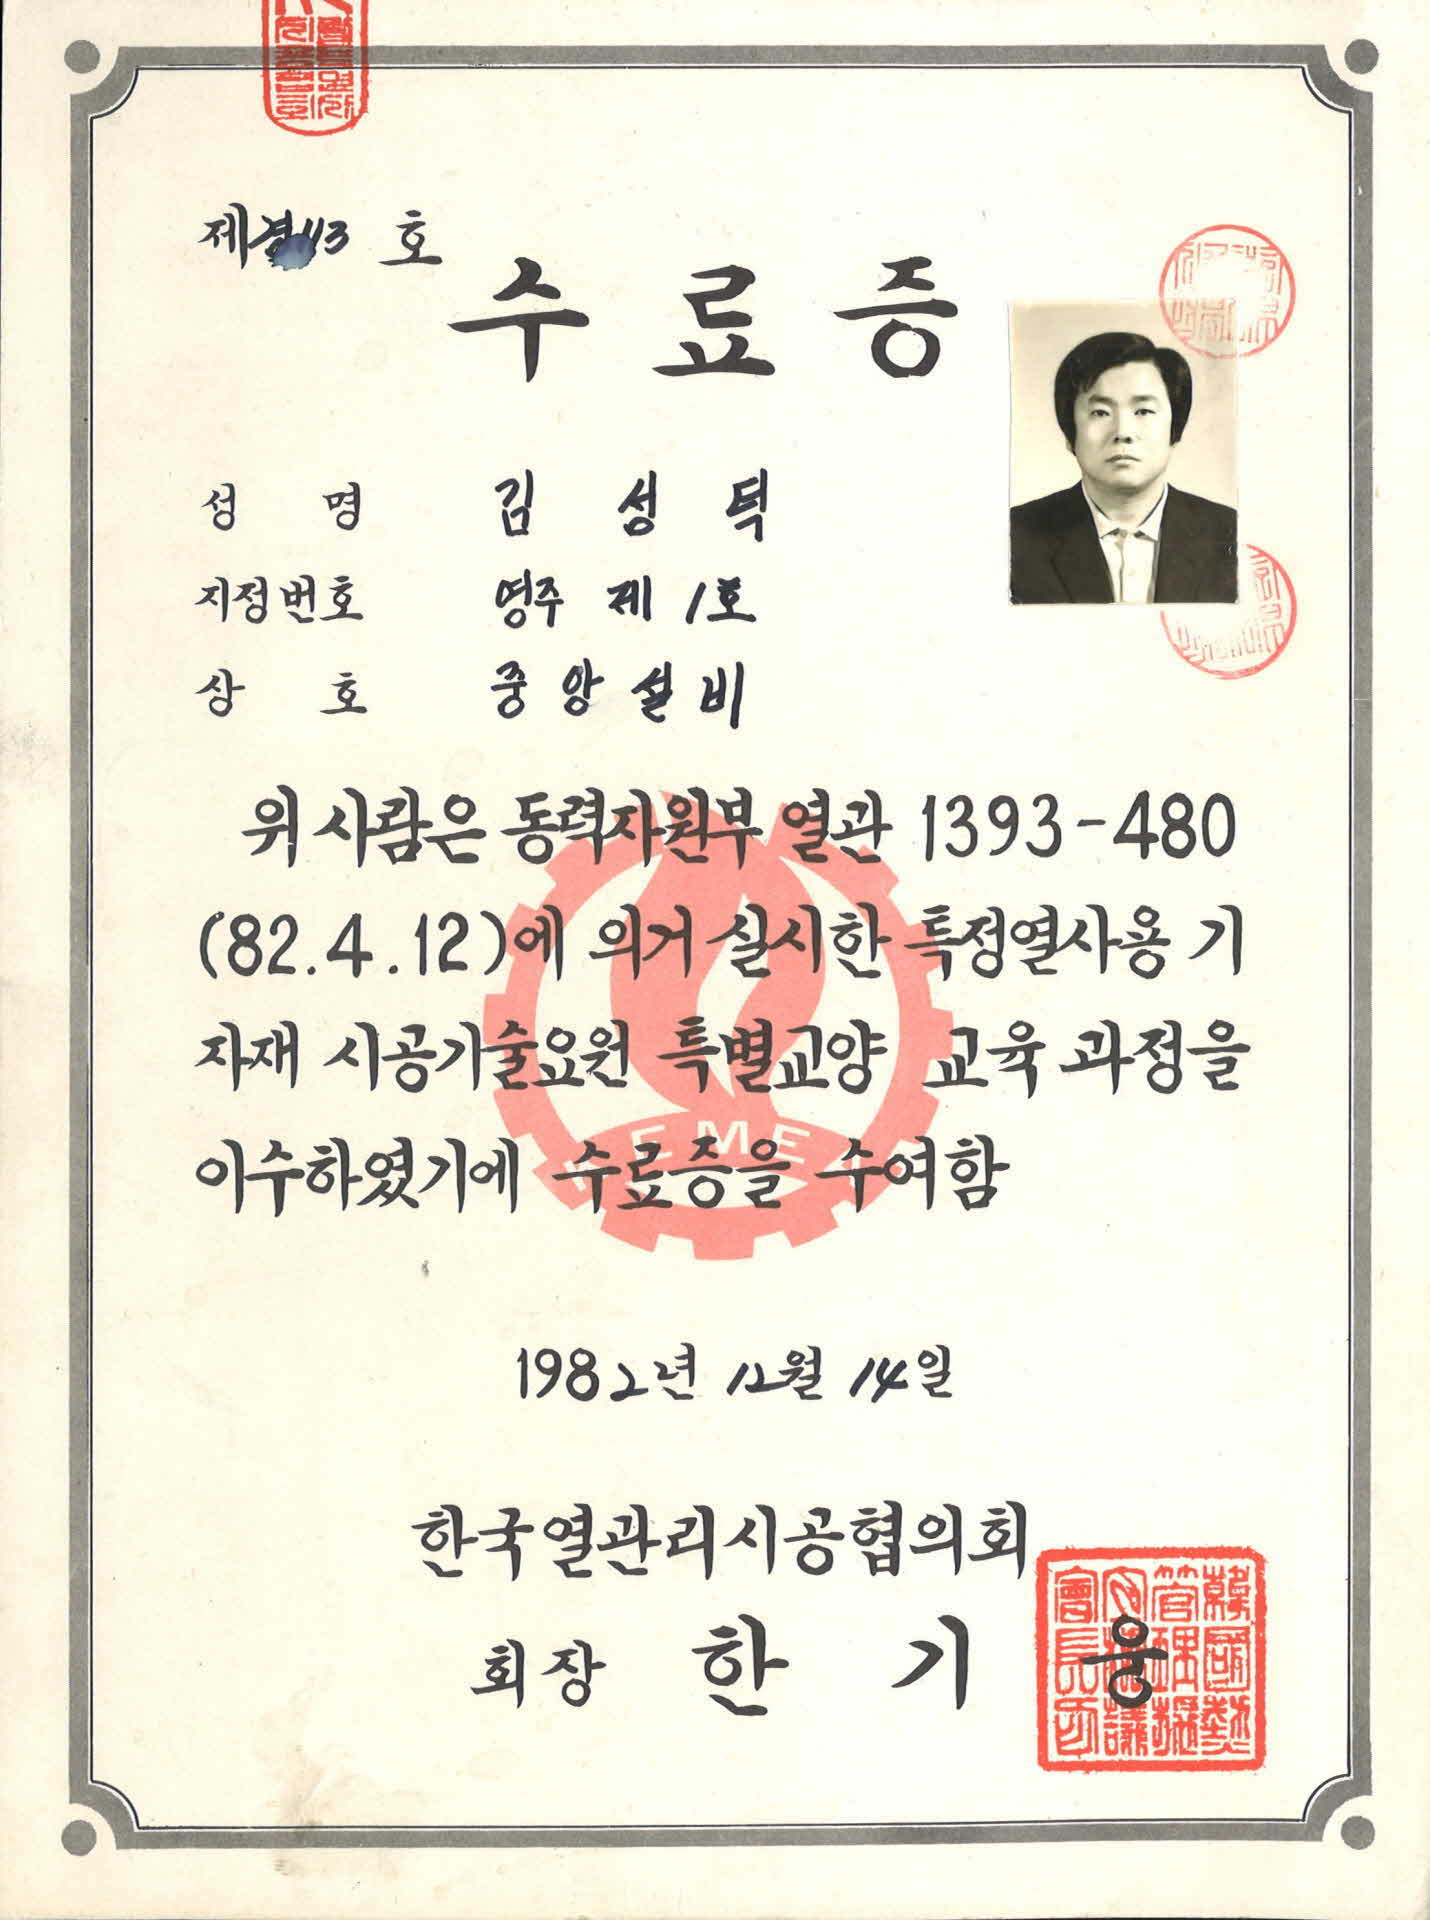 제경113 호
수 료 증
성 명 김 성 턱
지정번호 영주 제 1호
상 호 중앙설비
위 사람은 동력자원부 열관 1393-480
(82.4.12)에 의거 실시한 특정열사용 기
자재 시공기술요원 특별교양 교육 과정을
이수하였기에 수료증을 수여함
KEMEA
1982년 12월 14일
한국열관리시공협의회
회장 한 기 웅